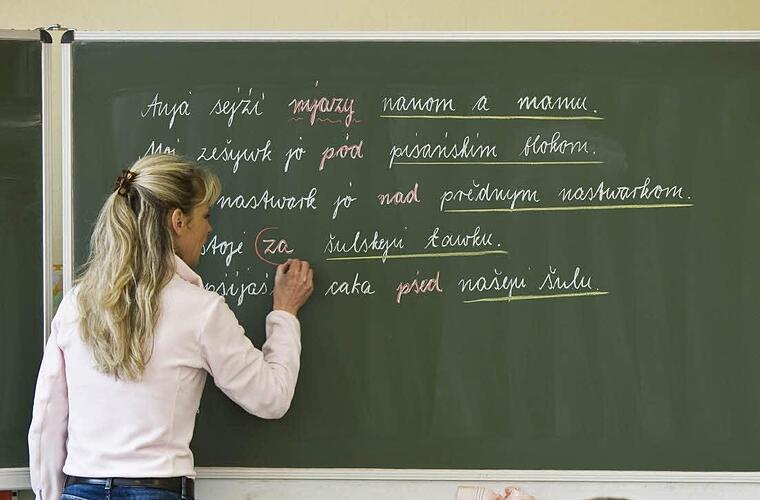 Anja sejźi mjazy nanom a mamu.
Mój zešywk jo pód pisańskim blokom.
nastwark jo nad prědnym nastwarkom.
stoje za šulskeju ławku.
caka pśed našeju šulu.